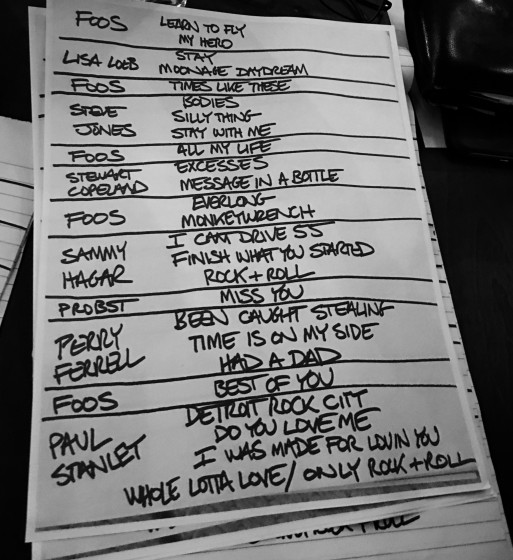 FOOS LEARN TO FLY
MY HERO
LISA LOEB STAY
MOONAGE DAYDREAM
FOOS TIMES LIKE THESE
STEVE BODIES
JONES SILLY THING
STAY WITH ME
FOOS ALL MY LIFE
STEWART EXCESSES
COPELAND MESSAGE IN A BOTTLE
FOOS EVERLONG
MONKEYWRENCH
SAMMY I CAN'T DRIVE 55
HAGAR FINISH WHAT YOU STARTED
ROCK + ROLL
PROBST MISS YOU
PERRY BEEN CAUGHT STEALING
FERRELL TIME IS ON MY SIDE
HAD A DAD
FOOS BEST OF YOU
PAUL DETROIT ROCK CITY
STANLEY DO YOU LOVE ME
I WAS MADE FOR LOVIN YOU
WHOLE LOTTA LOVE / ONLY ROCK + ROLL